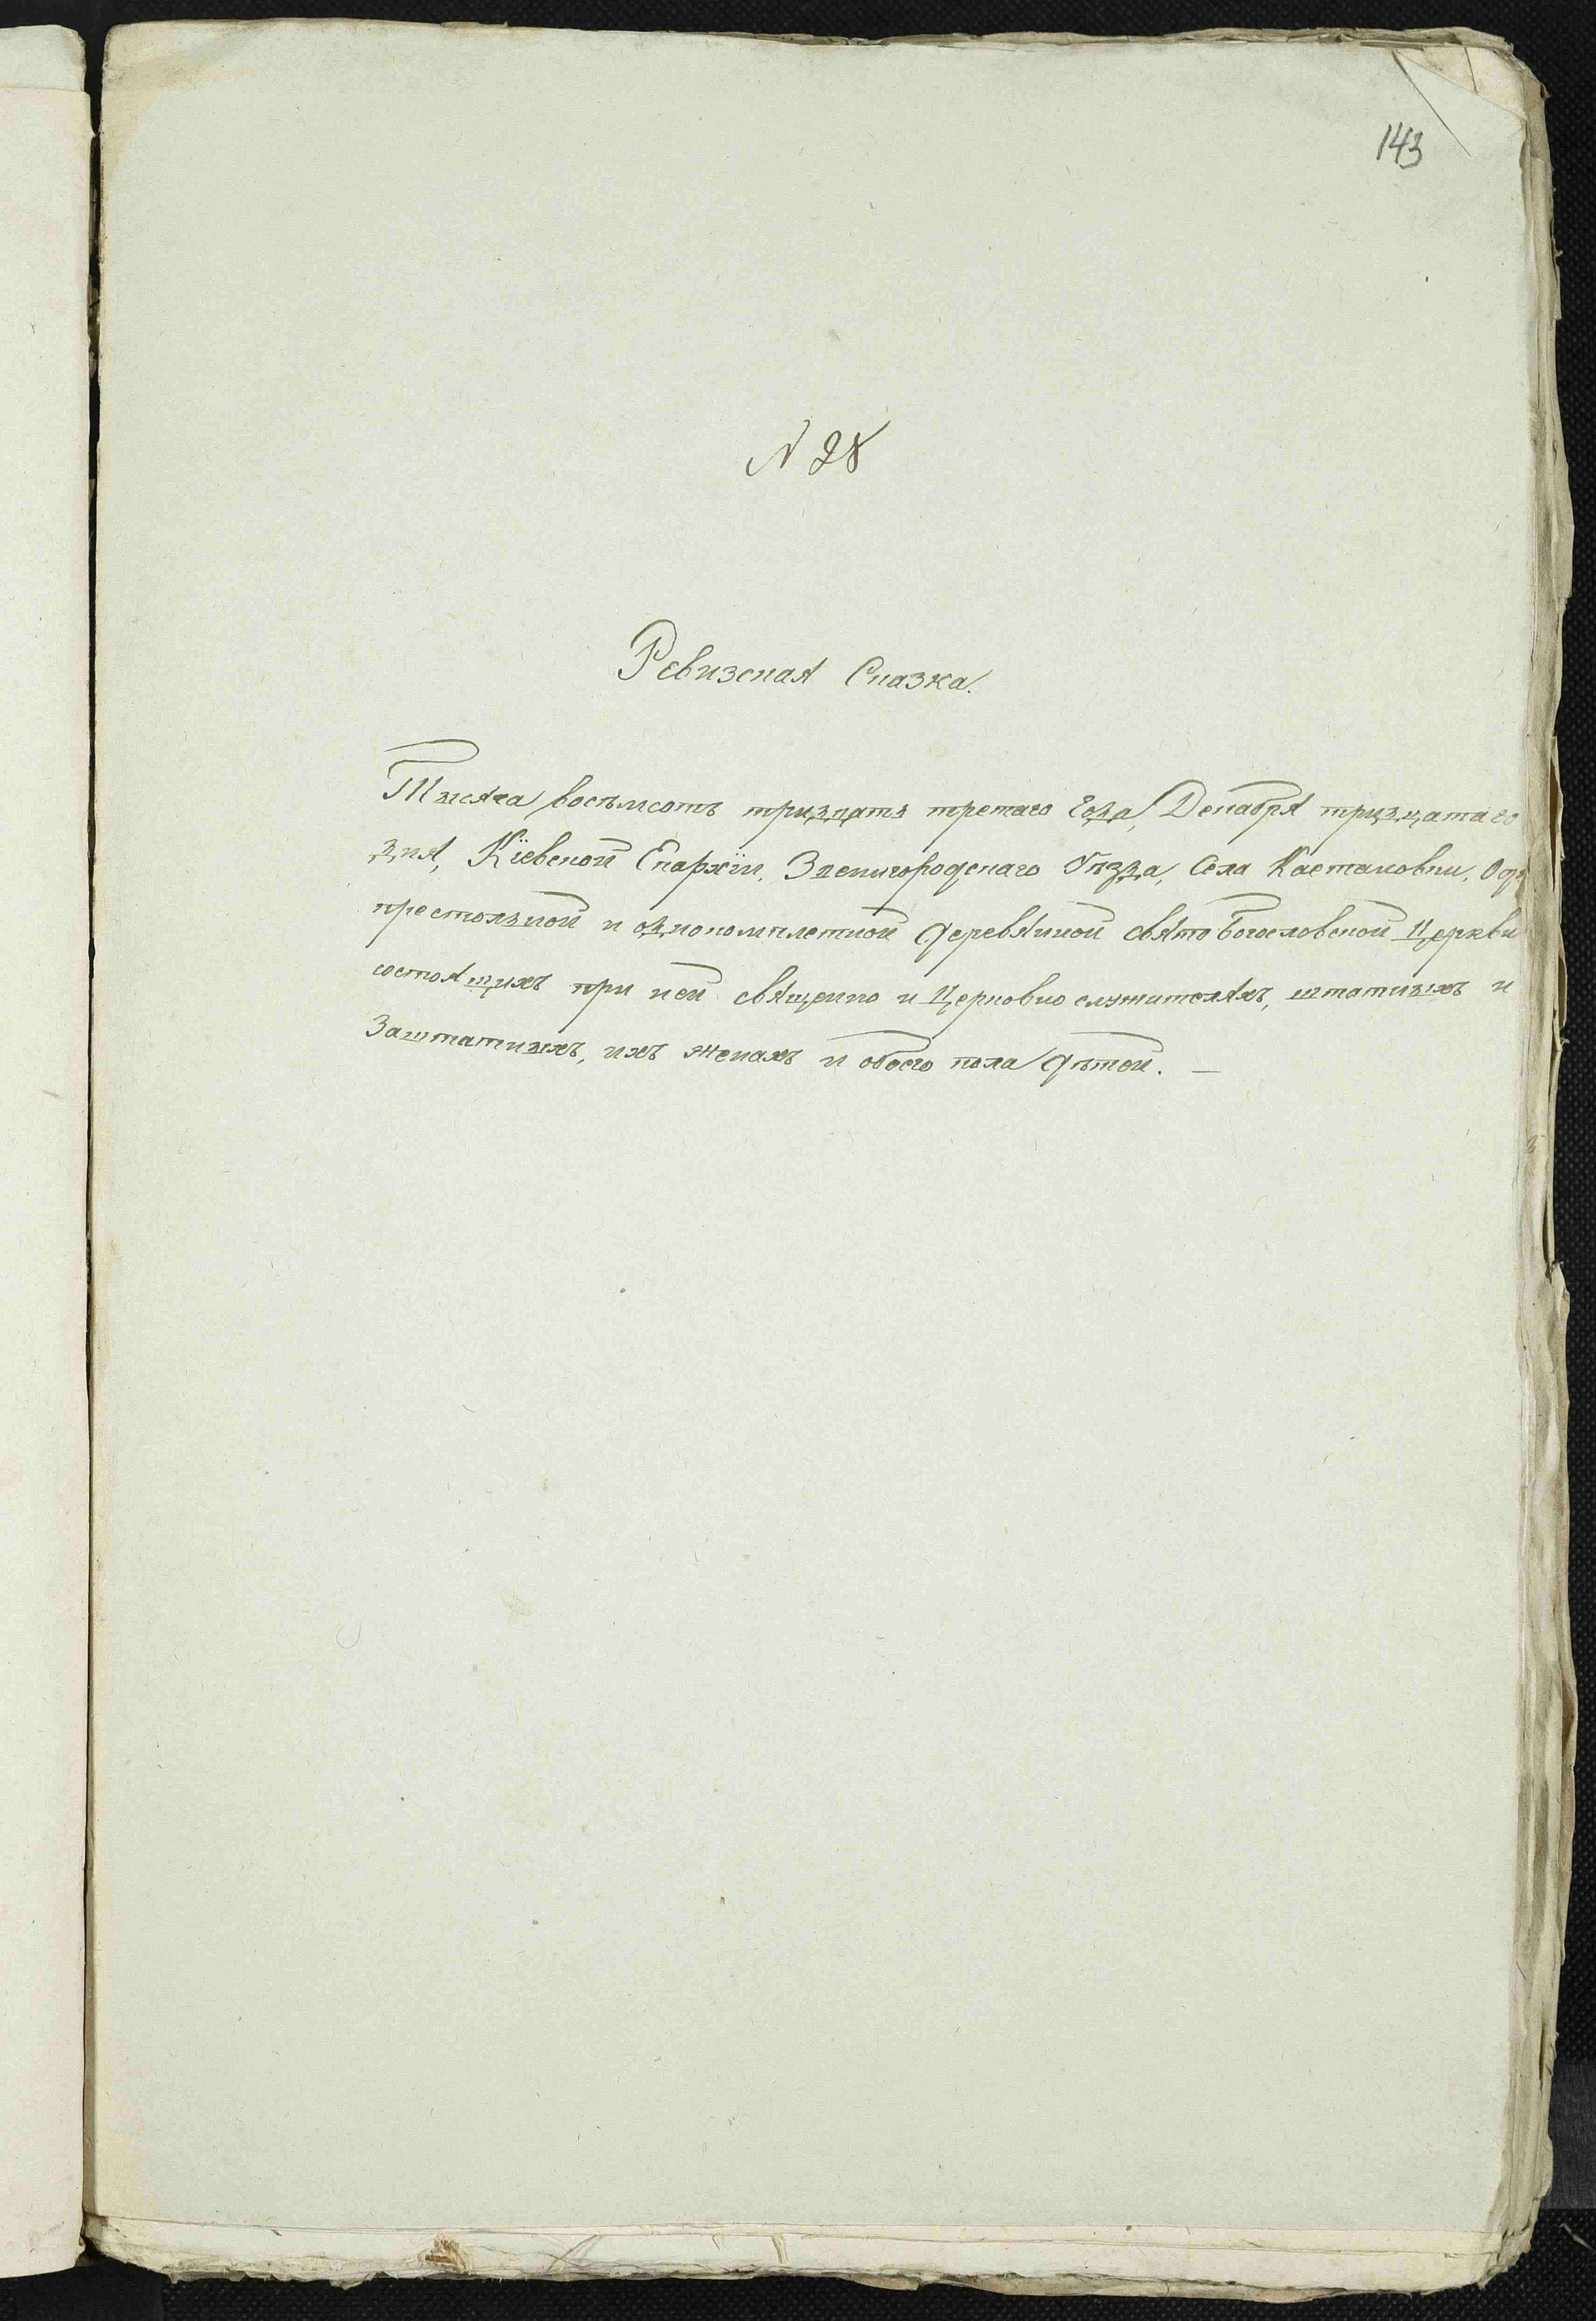 143
N 28
Ревизская Сказка.
Тысяча восѣмсотъ тридцать третаго года, Декабря тридцатаго
дня, Кїевской Епархїи, Звенигородскаго Уѣзда, Села Каетановки, Одно
престольной и однокомплетной деревяной свято Богословской Церкви
состоящихъ при ней священно и Церковно служителяхъ, штатныхъ и
Заштатныхъ, ихъ женахъ и обоего пола дѣтей. —